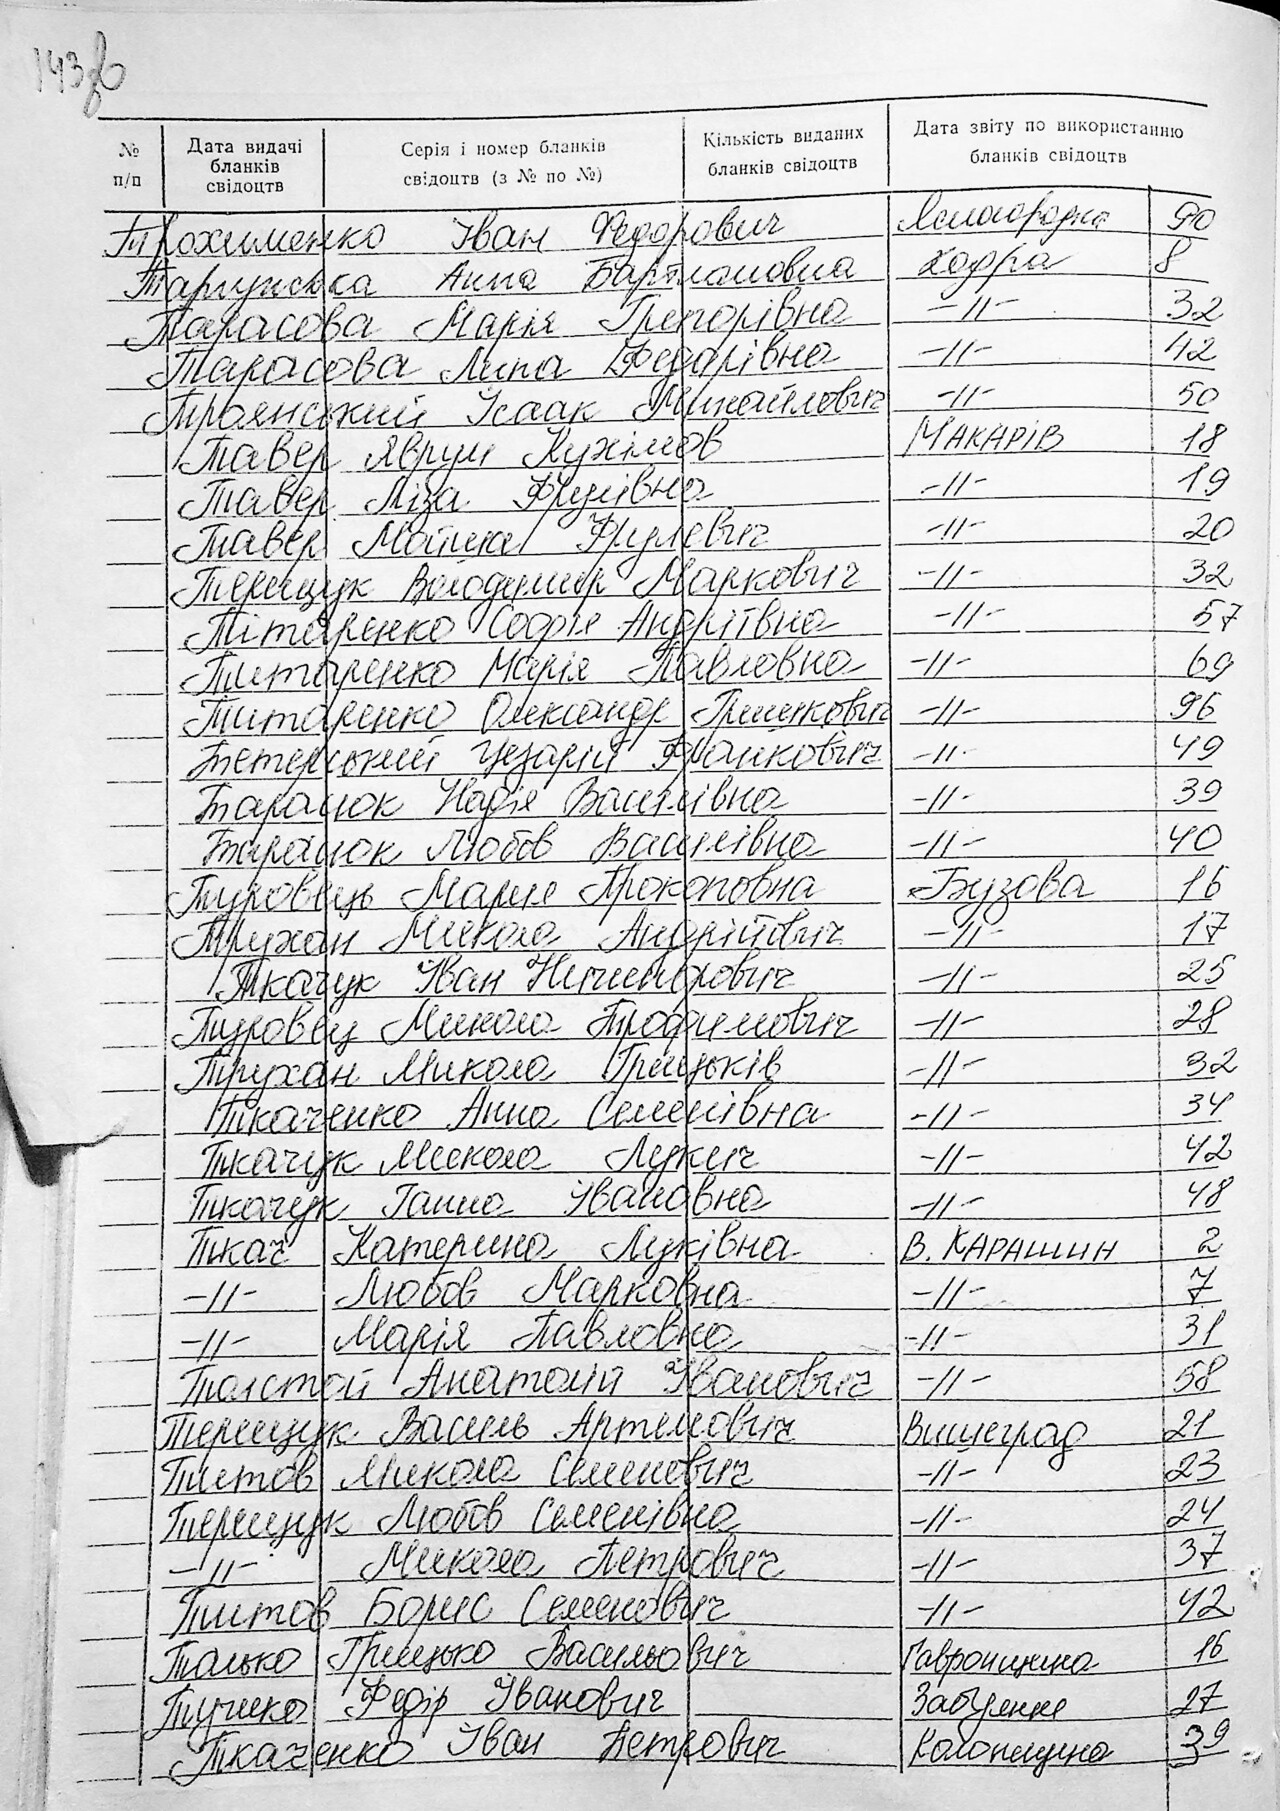 143зв
№ п/п Дата видачі бланків свідоцтв Серія і номер бланків свідоцтв (з № по №) Кількість виданих бланків свідоцтв Дата звіту по використанню бланків свідоцтв
Трохименко Іван Федорович 90
Анна 8
Тарасова Марія Григорівна -//- 32
Тарасова Федорівна -//- 42
Троянський Ісаак Михайлович -//- 50
Тавер МАКАРІВ 18
Тавер Ліза -//- 19
Тавер -//- 20
Терещук Володимир Маркович -//- 32
Тітаренко Софія Андріївна -//- 57
Титаренко Марія Павловна -//- 69
Титаренко Олександр -//- 96
Цезарій -//- 49
Таранюк Надія Василівна -//- 39
Таранюк Любов Василівна -//- 40
Туровець Марія Прокоповна Бузова 16
Трухан Микола Андрійович -//- 17
Ткачук Іван Ничипорович -//- 25
Туровец Микола Трофимович -//- 28
Трухан Микола Грицьків -//- 32
Ткаченко Анна Семенівна -//- 34
Ткачук Микола Лукич -//- 42
Ткачук Ганна Івановна -//- 48
Ткач Катерина Луківна В. КАРАШИН 2
-//- Любов Марковна -//- 7
-//- Марія Павловна -//- 31
Толстой Анатолій Іванович -//- 58
Терещук Василь Артемович Вишеград 21
Титов Микола Семенович -//- 23
Терещук Любов Семенівна -//- 24
-//- Микола Петрович -//- 37
Титов Борис Семенович -//- 42
Талько Грицько Васильович Гавронщина 16
Федір Іванович 27
Ткаченко Іван Петрович Колонщина 39